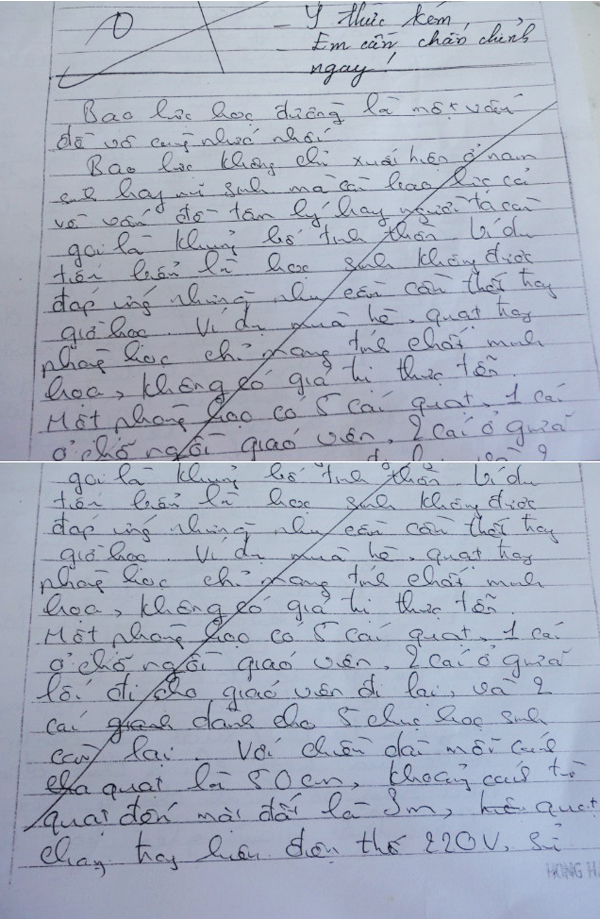 0
- Ý thức kém,
Em cần chấn chỉnh
ngay!
Bạo lực học đường là một vấn
đề vô cùng nhức nhối
Bạo lực không chỉ xuất hiện ở nam
sinh hay nữ sinh mà còn bạo lực cả
về vấn đề tâm lý hay người ta còn
gọi là khủng bố tinh thần. Ví dụ
tiêu biểu là học sinh không được
đáp ứng những nhu cầu cần thiết tại
giờ học. Ví dụ mùa hè, quạt tại
phòng học chỉ mang tính chất minh
họa, không có giá trị thực tiễn
Một phòng học có 5 cái quạt, 1 cái
ở chỗ ngồi giáo viên, 2 cái ở giữa
gọi là khủng bố tinh thần. Ví dụ
tiêu biểu là học sinh không được
đáp ứng những nhu cầu cần thiết tại
giờ học. Ví dụ mùa hè, quạt tại
phòng học chỉ mang tính chất minh
họa, không có giá trị thực tiễn
Một phòng học có 5 cái quạt, 1 cái
ở chỗ ngồi giáo viên, 2 cái ở giữa
lối đi cho giáo viên đi lại, và 2
cái dành cho 5 chục học sinh
còn lại. Với chiều dài mỗi cánh
quạt là 50cm, khoảng cách từ
quạt đến mặt đất là 3m, quạt
chạy tại hiệu điện thế 220V, số
HONG HA